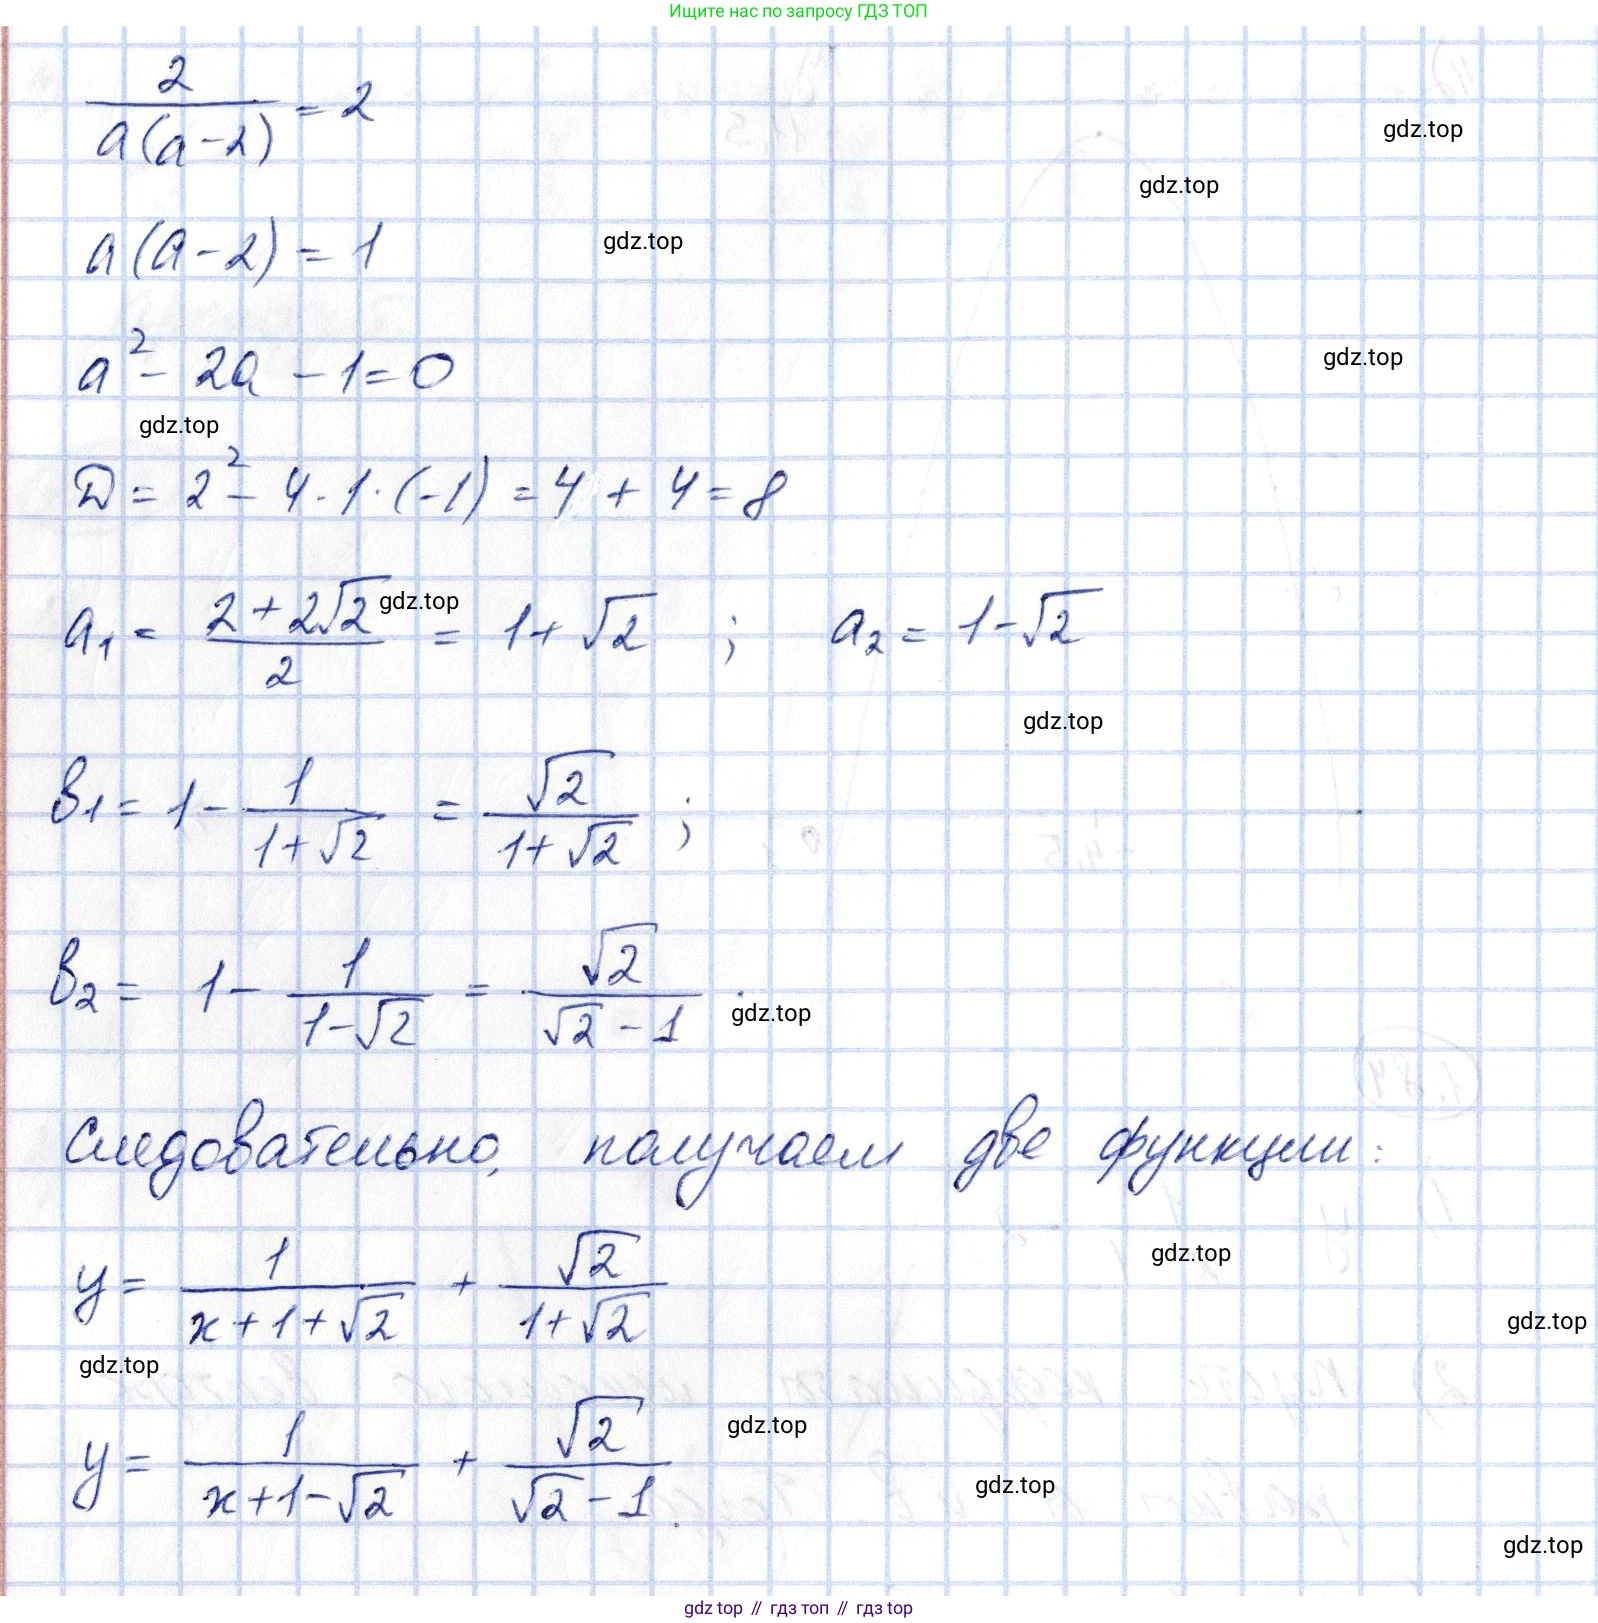 Ищите нас по запросу ГДЗ ТОП
2/(a(a-2)) = 2
gdz.top
gdz.top
a(a-2) = 1
gdz.top
a² - 2a - 1 = 0
gdz.top
gdz.top
D = 2² - 4·1·(-1) = 4 + 4 = 8
a₁ = (2+2√2)/2 = 1+√2 ; a₂ = 1-√2
gdz.top
gdz.top
b₁ = 1 - 1/(1+√2) = √2/(1+√2) ;
b₂ = 1 - 1/(1-√2) = √2/(√2-1) .
gdz.top
Следовательно, получаем две функции:
gdz.top
y = 1/(x+1+√2) + √2/(1+√2)
gdz.top
gdz.top
y = 1/(x+1-√2) + √2/(√2-1) .
gdz.top
gdz.top
gdz.top
gdz.top // гдз топ // гдз top